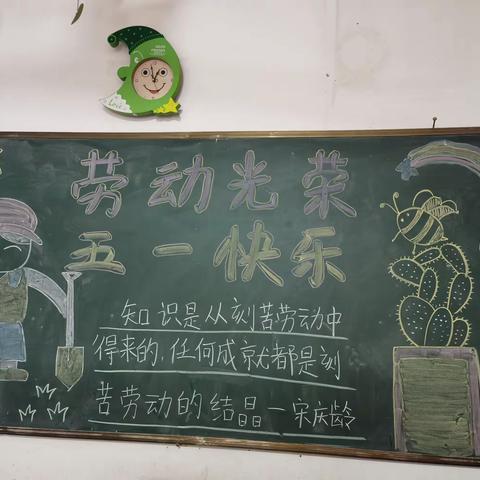 劳动光荣
五一快乐
知识是从刻苦劳动中
得来的,任何成就都是刻
苦劳动的结晶一宋庆龄